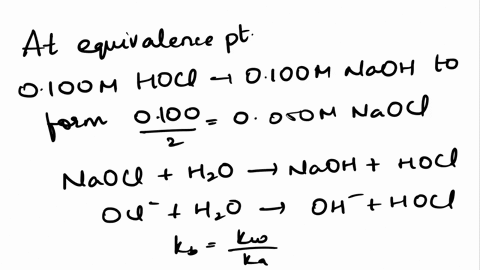 At equivalence pt.
0.100M HOCl → 0.100M NaOH to
form 0.100/2 = 0.050M NaOCl
NaOCl + H₂O → NaOH + HOCl
OCl⁻ + H₂O → OH⁻ + HOCl
kb = kw/ka